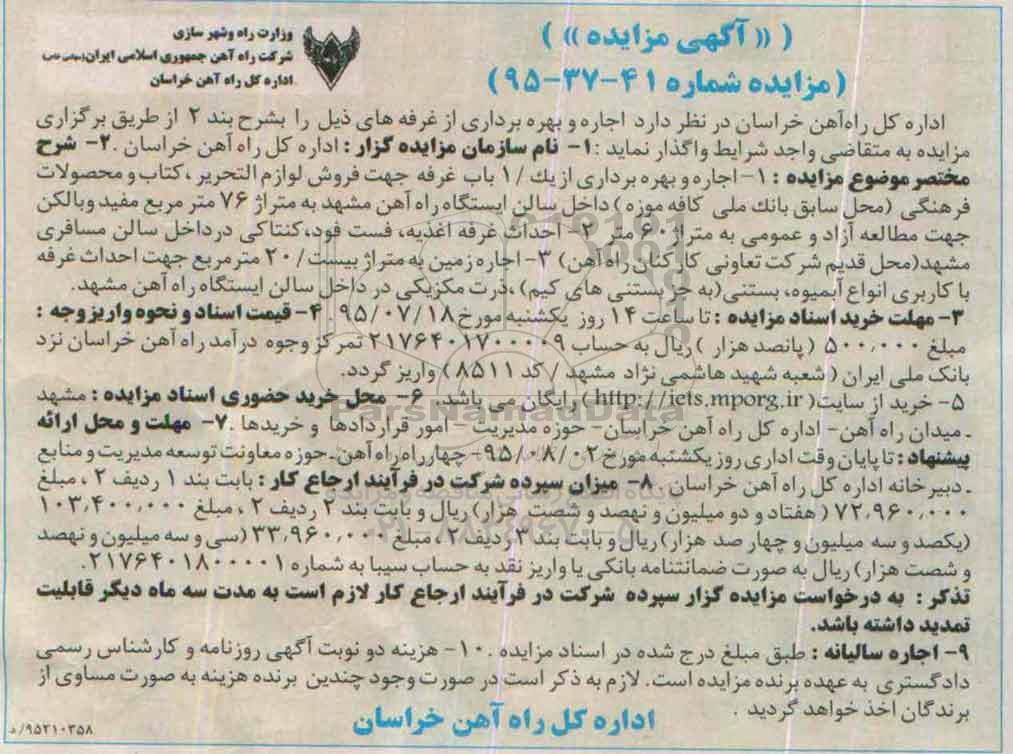 وزارت راه وشهر سازی
شرکت راه آهن جمهوری اسلامی ایران(سهامی خاص)
اداره کل راه آهن خراسان
( (( آگهی مزایده )) )
(مزایده شماره ۴۱-۳۷-۹۵)
اداره کل راه‌آهن خراسان در نظر دارد اجاره و بهره برداری از غرفه های ذیل را بشرح بند ۲ از طریق برگزاری
مزایده به متقاضی واجد شرایط واگذار نماید :۱- نام سازمان مزایده گزار : اداره کل راه آهن خراسان .۲- شرح
مختصر موضوع مزایده : ۱-اجاره و بهره برداری از یك /۱ باب غرفه جهت فروش لوازم التحریر ،کتاب و محصولات
فرهنگی (محل سابق بانك ملی کافه موزه ) داخل سالن ایستگاه راه آهن مشهد به متراژ ۷۶ متر مربع مفید وبالکن
جهت مطالعه آزاد و عمومی به متراژ ۶۰ متر ۲- احداث غرفه اغذیه، فست فود،کنتاکی درداخل سالن مسافری
مشهد(محل قدیم شرکت تعاونی کارکنان راه آهن) ۳-اجاره زمین به متراژ بیست/ ۲۰ مترمربع جهت احداث غرفه
با کاربری انواع آبمیوه، بستنی(به جز بستنی های کیم) ،ذرت مکزیکی در داخل سالن ایستگاه راه آهن مشهد.
۳- مهلت خرید اسناد مزایده : تا ساعت ۱۴ روز یکشنبه مورخ ۹۵/۰۷/۱۸ . ۴- قیمت اسناد و نحوه واریز وجه :
مبلغ ۵۰۰,۰۰۰ ( پانصد هزار ) ریال به حساب ۲۱۷۶۴۰۱۷۰۰۰۰۹ تمرکز وجوه درآمد راه آهن خراسان نزد
بانک ملی ایران ( شعبه شهید هاشمی نژاد مشهد / کد ۸۵۱۱ ) واریز گردد.
۵- خرید از سایت( http://iets.mporg.ir) رایگان می باشد. ۶- محل خرید حضوری اسناد مزایده : مشهد
- میدان راه آهن- اداره کل راه آهن خراسان- حوزه مدیریت - امور قراردادها و خریدها .۷- مهلت و محل ارائه
پیشنهاد : تا پایان وقت اداری روز یکشنبه مورخ ۹۵/۰۸/۰۲- چهارراه راه آهن-حوزه معاونت توسعه مدیریت و منابع
- دبیرخانه اداره کل راه آهن خراسان . ۸- میزان سپرده شرکت در فرآیند ارجاع کار : بابت بند ۱ ردیف ۲ ، مبلغ
۷۲,۹۶۰,۰۰۰ ( هفتاد و دو میلیون و نهصد و شصت هزار) ریال و بابت بند ۲ ردیف ۲ ، مبلغ ۱۰۳,۴۰۰,۰۰۰
(یکصد و سه میلیون و چهار صد هزار) ریال و بابت بند ۳ ردیف ۲ ، مبلغ ۳۳,۹۶۰,۰۰۰ (سی و سه میلیون و نهصد
و شصت هزار) ریال به صورت ضمانتنامه بانکی یا واریز نقد به حساب سیبا به شماره ۲۱۷۶۴۰۱۸۰۰۰۰۱ .
تذکر : به درخواست مزایده گزار سپرده شرکت در فرآیند ارجاع کار لازم است به مدت سه ماه دیگر قابلیت
تمدید داشته باشد.
۹- اجاره سالیانه : طبق مبلغ درج شده در اسناد مزایده .۱۰- هزینه دو نوبت آگهی روزنامه و کارشناس رسمی
دادگستری به عهده برنده مزایده است. لازم به ذکر است در صورت وجود چندین برنده هزینه به صورت مساوی از
برندگان اخذ خواهد گردید .
اداره کل راه آهن خراسان
۹۵۲۱۰۳۵۸/د
ParsNamadData